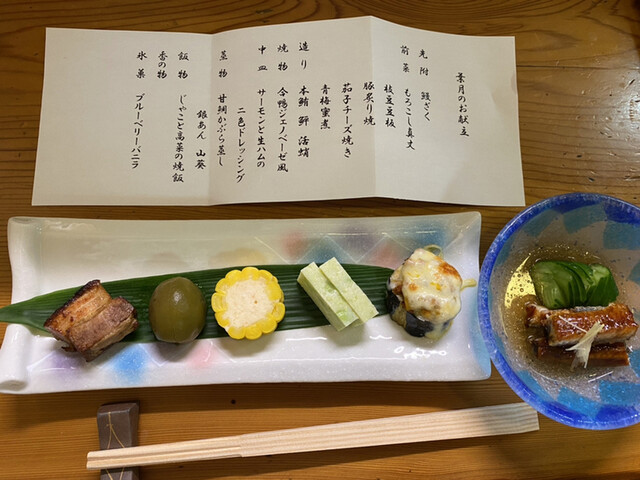 葉月のお献立
先附　鰻ざく
前菜　もろこし真丈
枝豆豆板
豚炙り焼
茄子チーズ焼き
青梅蜜煮
造り　本鮪　鮃　活蛸
焼物　合鴨ジェノベーゼ風
中皿　サーモンと生ハムの
二色ドレッシング
蒸物　甘鯛かぶら蒸し
銀あん　山葵
飯物　じゃこと高菜の焼飯
香の物
氷菓　ブルーベリーバニラ